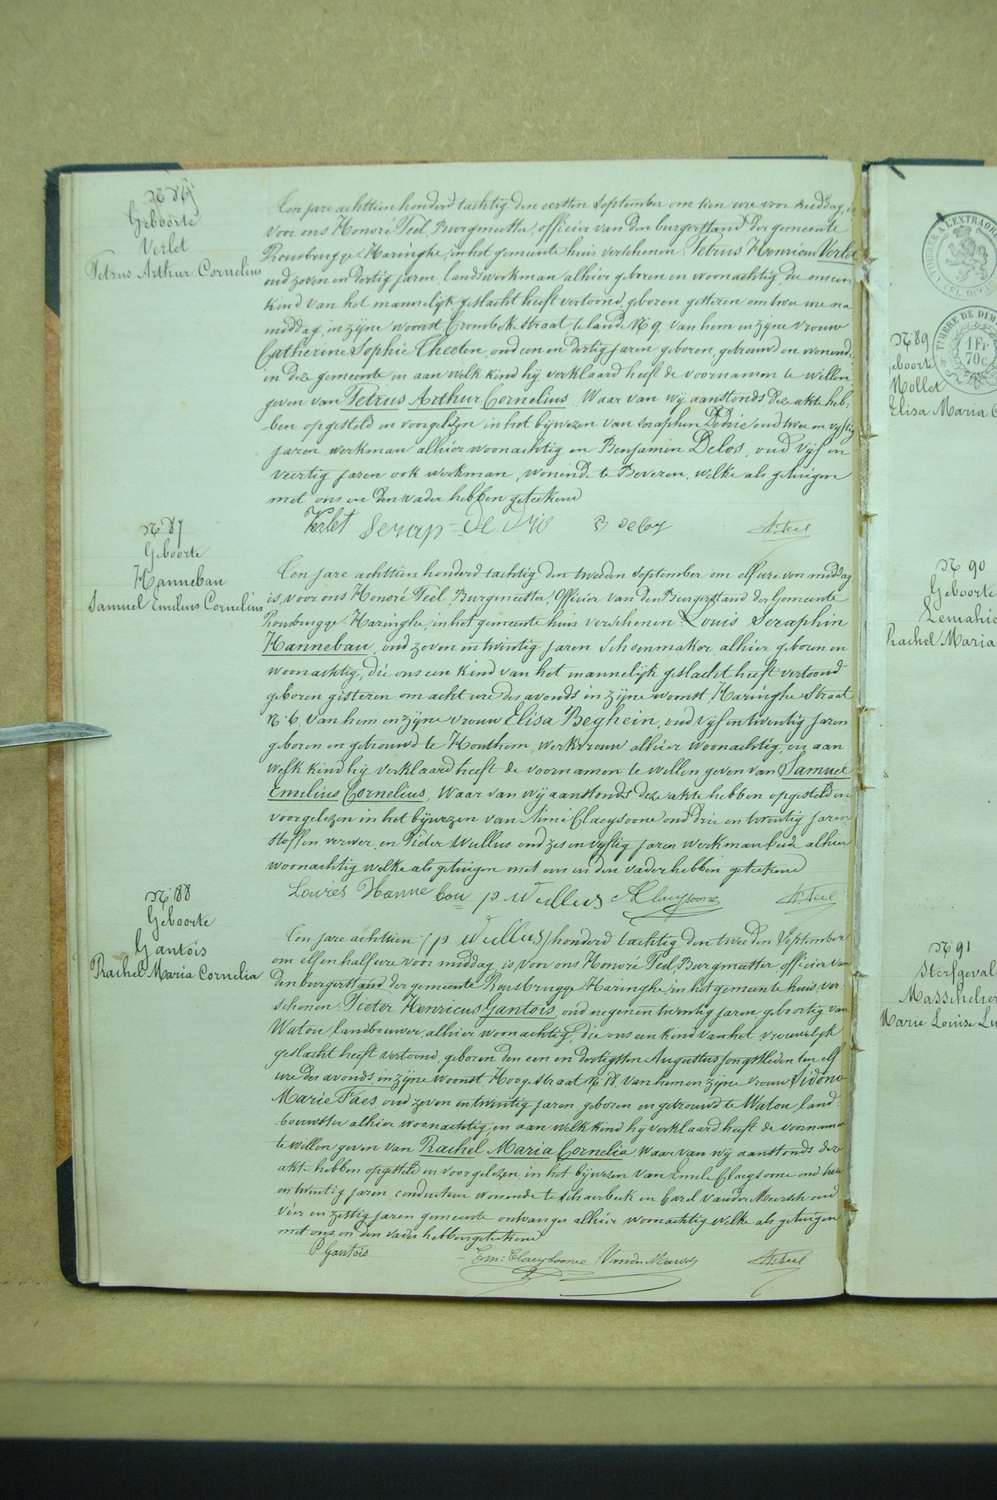 N 86
Geboorte
Verlet
Petrus Arthur Cornelius
Een jare achttien honderd tachtig den eersten September om tien ure voor middag, is
voor ons Honoré Teel, Burgmeester, officier van den burgerstand der gemeente
Rousbrugge Haringhe, in het gemeente huis verschenen Petrus Henricus Verlet
oud zeven en dertig jaren landswerkman alhier geboren en woonachtig, die ons een
kind van het mannelijk geslacht heeft vertoond, geboren gisteren om twee ure na
middag, in zijne woonst Crombekestraat te lande N 9 van hem en zijne vrouw
Catherine Sophie Theeten, oud een en dertig jaren geboren, getrouwd en wonend
in deze gemeente en aan welk kind hij verklaard heeft de voornamen te willen
geven van Petrus Arthur Cornelius. Waar van wij aanstonds deze akte heb-
ben opgesteld en voorgelezen in het bijwezen van Seraphin Dedrie oud twee en vijftig
jaren werkman alhier woonachtig en Benjamin Delos, oud vijf en
veertig jaren ook werkman, wonende te Beveren, welke als getuigen
met ons en den vader hebben geteekend
Verlet Serap De Drie B Delos H. Teel
N 87
Geboorte
Hannebau
Samuel Emilius Cornelius
Een jare achttien honderd tachtig den tweeden September om elf ure voor middag
is, voor ons Honoré Teel, Burgmeester, Officier van den Burgerstand der Gemeente
Rousbrugge Haringhe, in het gemeente huis verschenen Louis Seraphin
Hannebau, oud zeven en twintig jaren schoenmaker alhier geboren en
woonachtig, die ons een kind van het mannelijk geslacht heeft vertoond
geboren gisteren om acht ure des avonds in zijne woonst Haringhe Straat
N 6 van hem en zijne vrouw Elisa Beghein, oud vijf en twintig jaren
geboren en getrouwd te Houthem, werkvrouw alhier woonachtig, en aan
welk kind hij verklaard heeft de voornamen te willen geven van Samuel
Emilius Cornelius. Waar van wij aanstonds deze akte hebben opgesteld en
voorgelezen in het bijwezen van Aimé Claeysoone oud drie en twintig jaren
stoffen verwer, en Pieder Wullus oud zes en vijftig jaren werkman beide alhier
woonachtig welke als getuigen met ons en den vader hebben geteekend
Louies Hanne bau p Wullus A Claeysoone H. Teel
N 88
Geboorte
Gantois
Rachel Maria Cornelia
Een jare achttien (p Wullus) honderd tachtig den tweeden September
om elf en half ure voor middag, is voor ons Honoré Teel Burgmeester, officier van
den burgerstand der gemeente Rousbrugge Haringhe, in het gemeente huis, ver-
schenen Pieter Henricus Gantois, oud negen en twintig jaren, geboortig van
Watou landbouwer, alhier woonachtig, die ons een kind van het vrouwelijk
geslacht heeft vertoond, geboren den een en dertigsten Augustus jongstleden ten elf
ure des avonds, in zijne woonst Hooge straat N 18 van hem en zijne vrouw Sidonie
Marie Faes oud zeven en twintig jaren geboren en getrouwd te Watou, land-
bouwster alhier woonachtig, en aan welk kind hij verklaard heeft de voornamen
te willen geven van Rachel Maria Cornelia Waar van wij aanstonds deze
akte hebben opgesteld en voorgelezen in het bijwezen van Emile Claeysoone oud
en twintig jaren conducteur wonende te Schaerbeek en Carel Vander Meersch oud
vier en zestig jaren gemeente ontvanger alhier woonachtig welke als getuigen
met ons en den vader hebben geteekend
P Gantois Em. Claeysoone Vander Meersch H. Teel
TIMBRE DE DIM
1 Fr
70 c
N 89
eboorte
Mollet
Elisa Maria C
N 90
Geboorte
Lemahie
Rachel Maria
N 91
Sterfgeval
Masschelier
Marie Louise